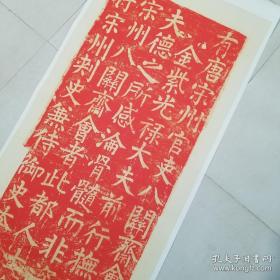 有唐宋州官吏八關齋會
金紫光祿大夫前行撫
夫德之所感淪骨髓而非
宋州八關齋會者此都人
符宋州刺史兼侍御史本
孔夫子旧书网